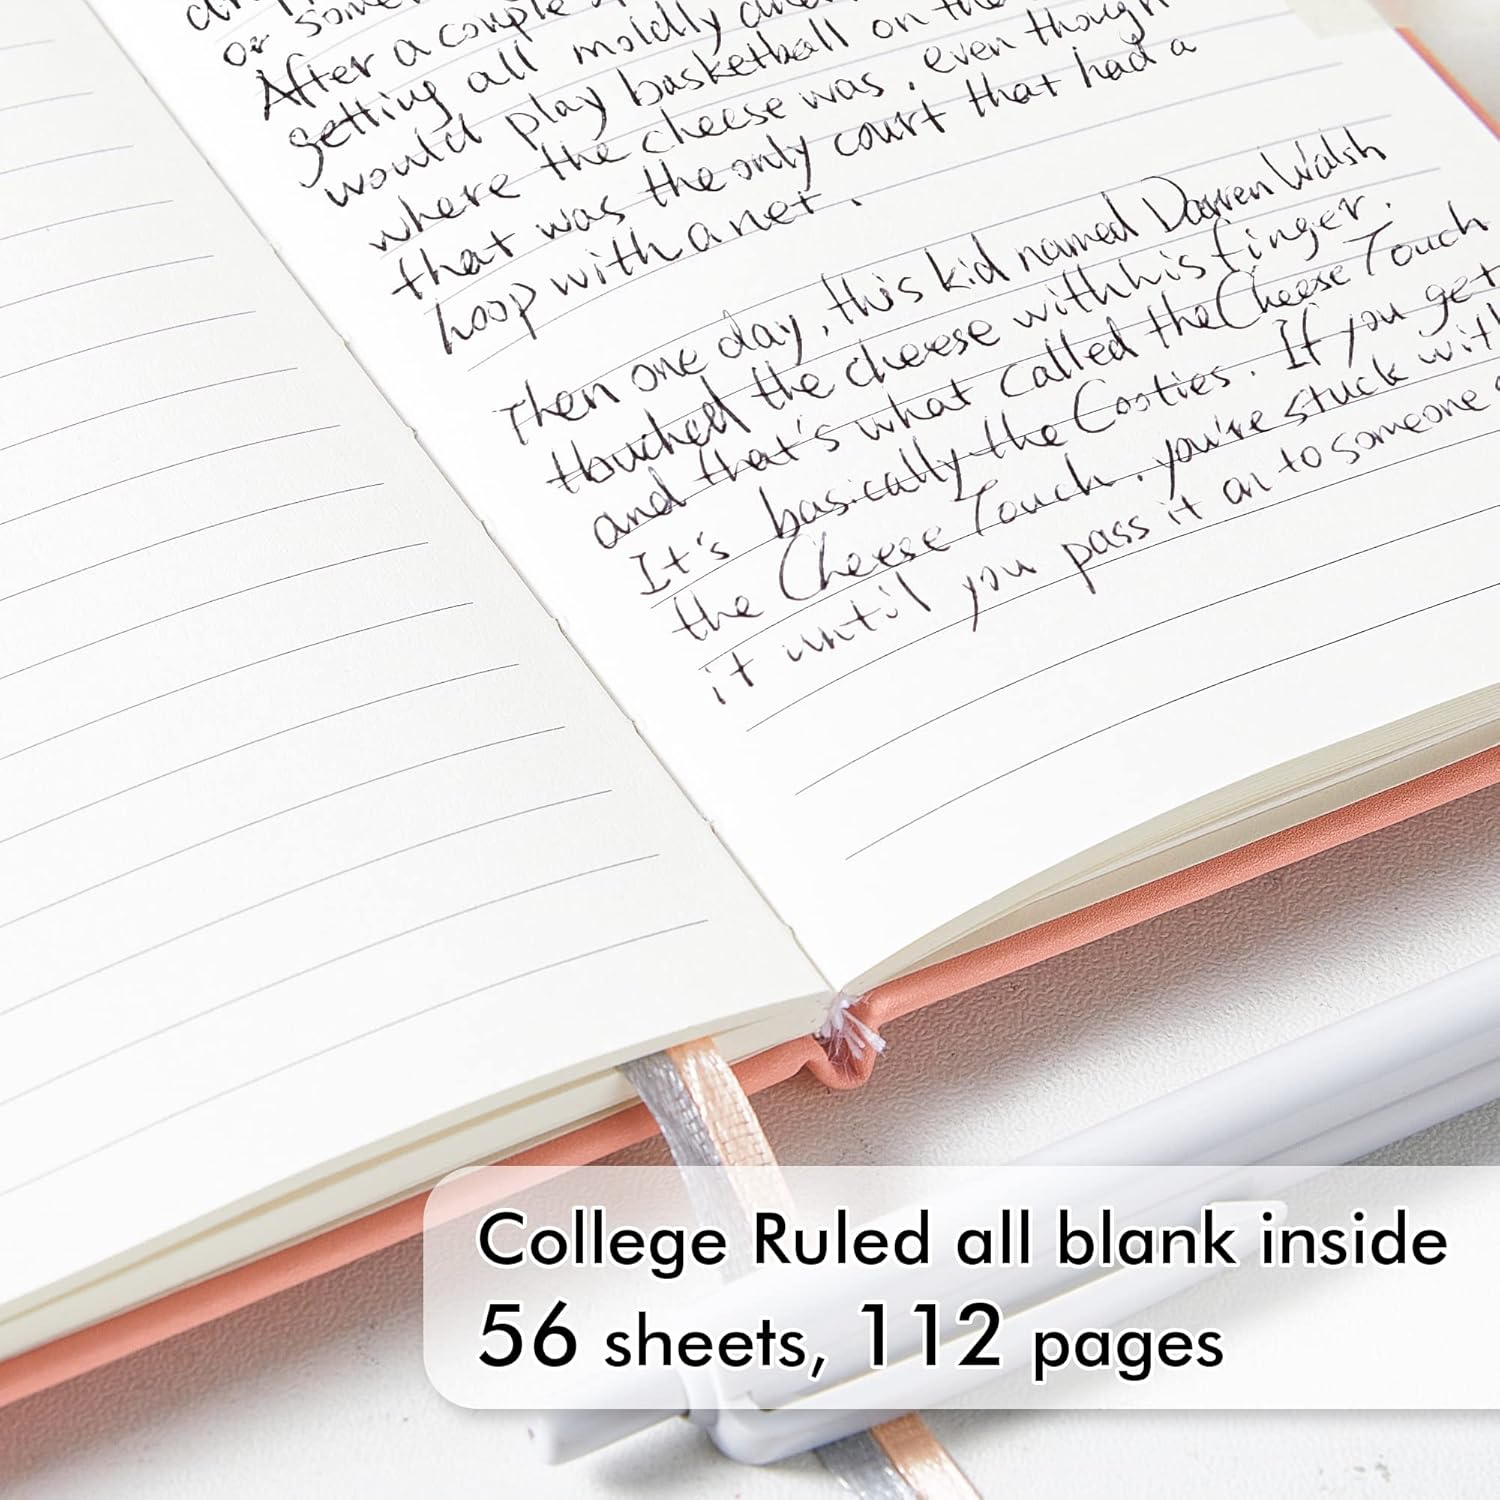 or some
After a couple
getting all moldly and
would play basketball on the
where the cheese was, even though
that was the only court that had a
hoop with a net.
Then one day, this kid named Darren Walsh
touched the cheese with his finger.
and that's what called the Cheese Touch
It's basically the Cooties. If you get
the Cheese Touch, you're stuck with
it until you pass it on to someone
College Ruled all blank inside
56 sheets, 112 pages